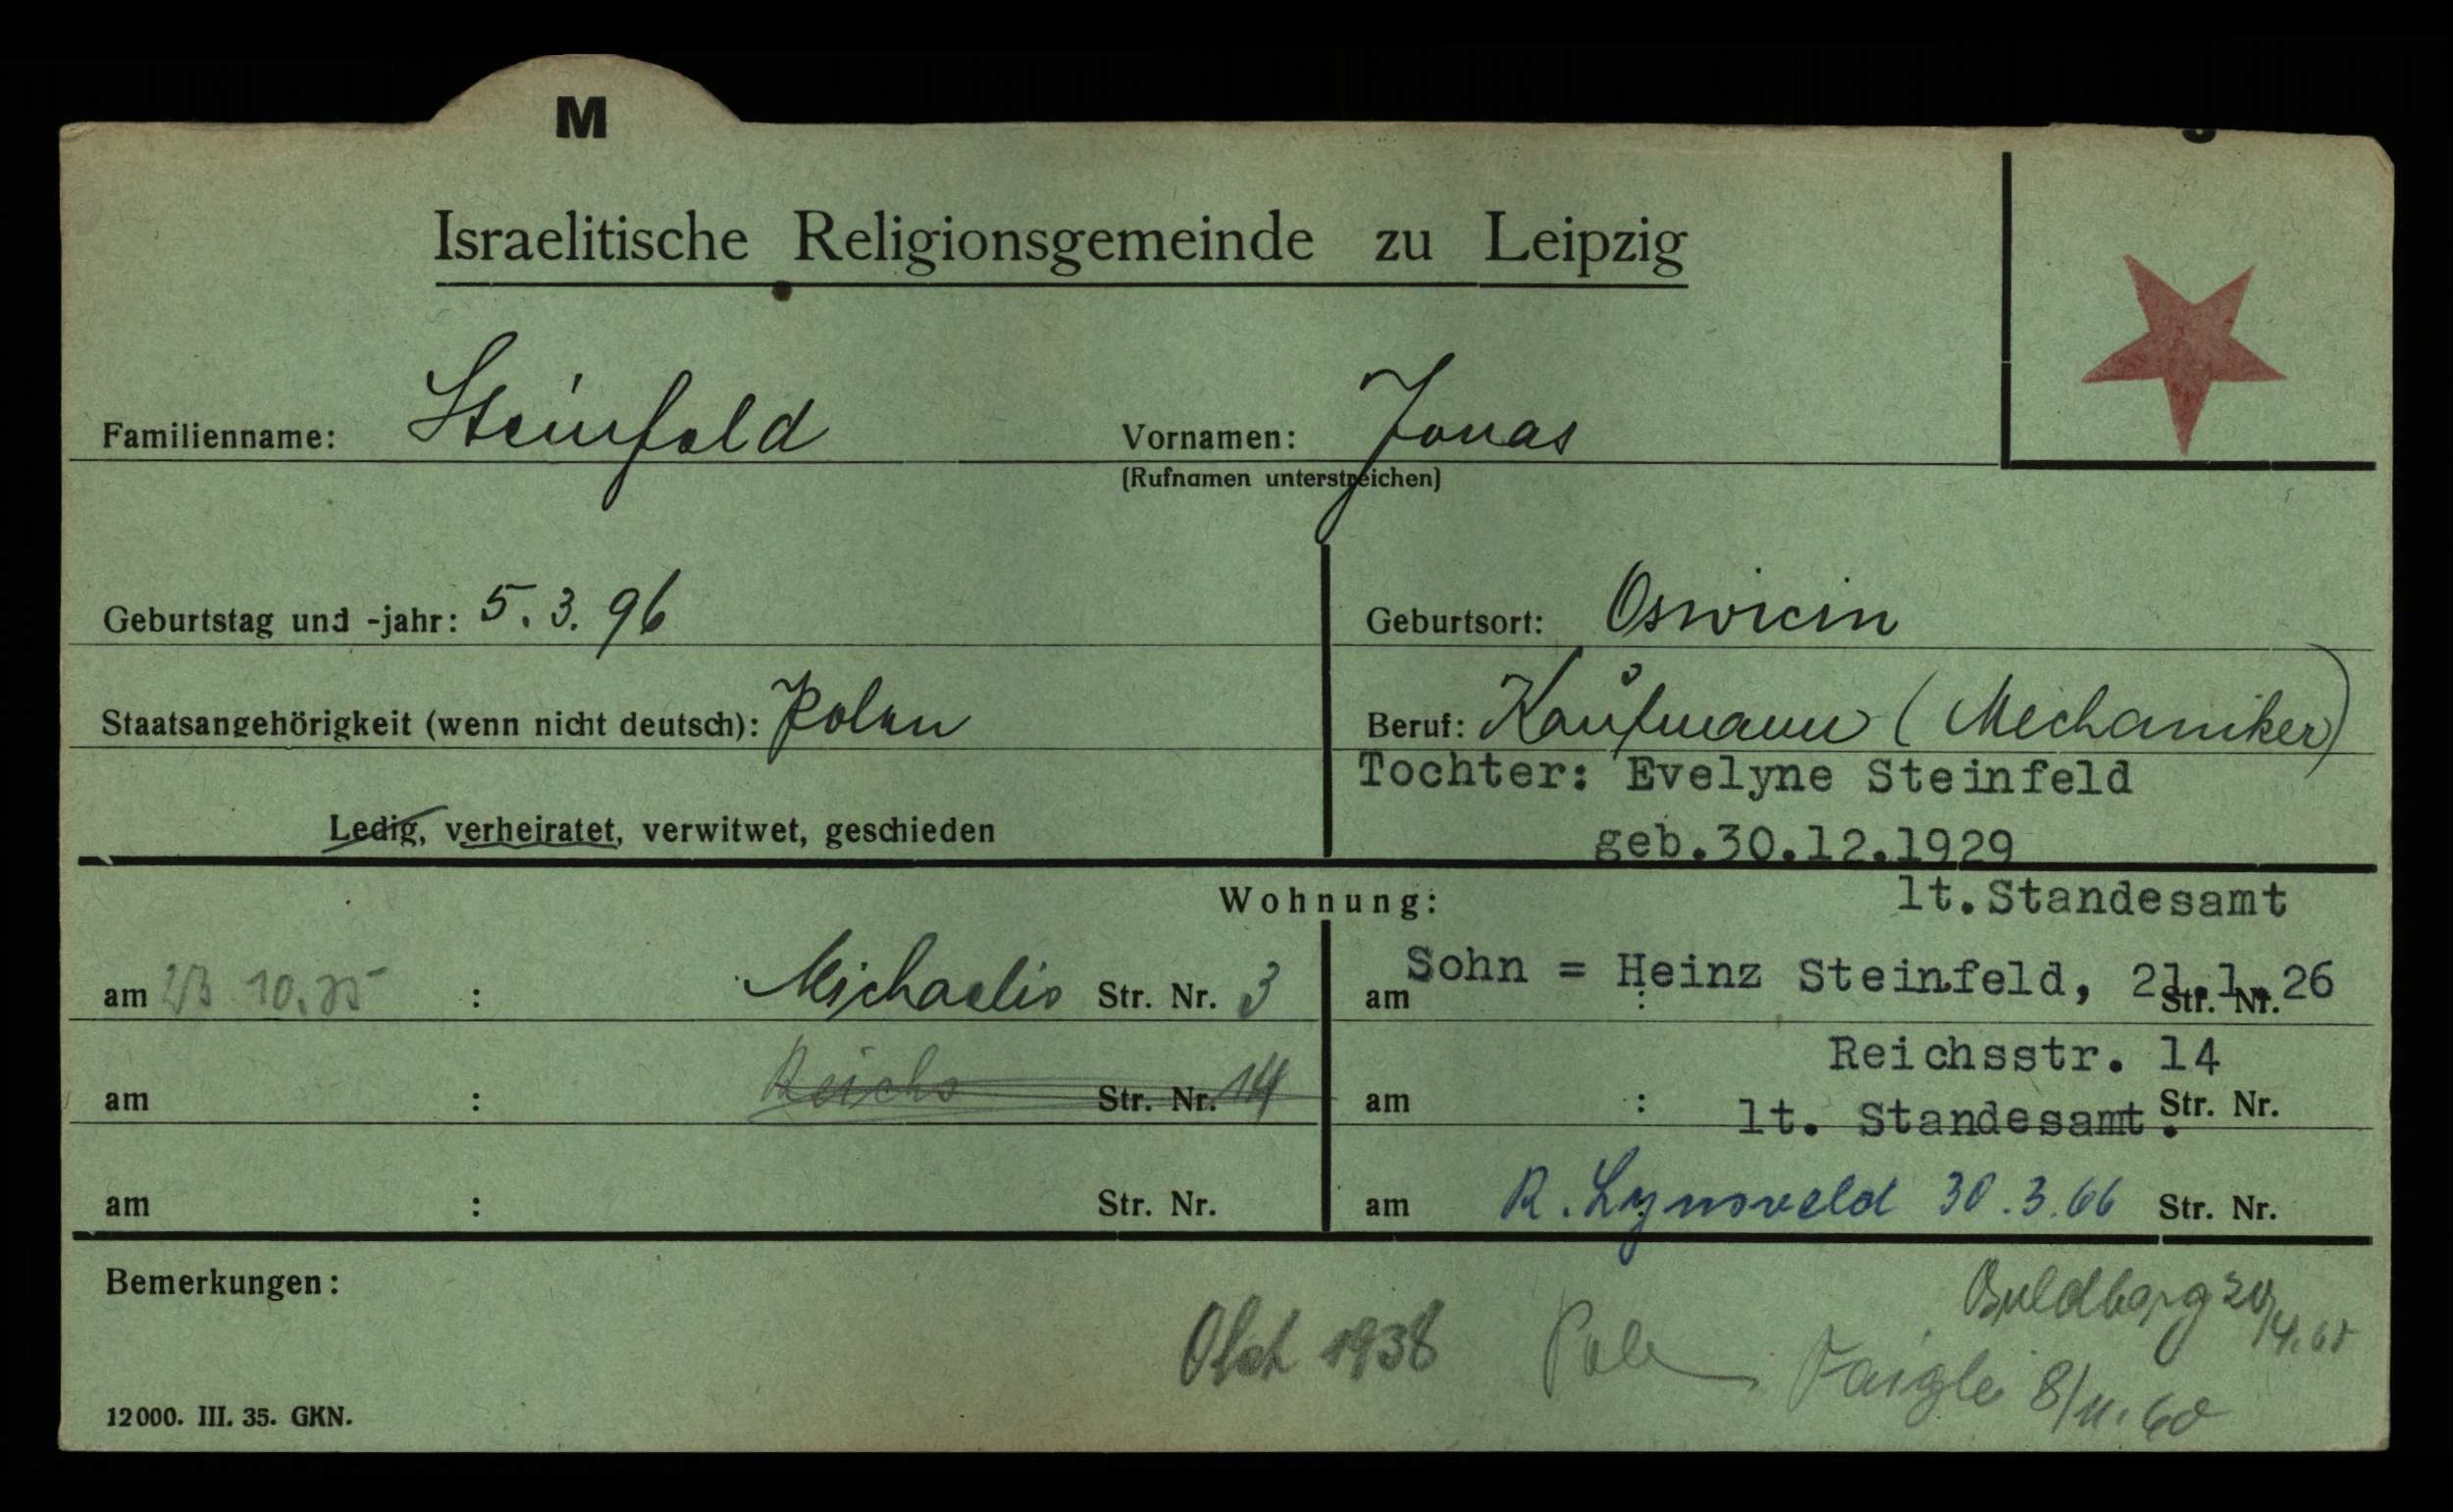 M
Israelitische Religionsgemeinde zu Leipzig
Familienname: Steinfeld Vornamen: Jonas
(Rufnamen unterstreichen)
Geburtstag und -jahr: 5.3.96 Geburtsort: Oswicin
Staatsangehörigkeit (wenn nicht deutsch): Polen Beruf: Kaufmann (Mechaniker)
Tochter: Evelyne Steinfeld
Ledig, verheiratet, verwitwet, geschieden
geb.30.12.1929
Wohnung: lt.Standesamt
am 10.35 : Michaelis Str. Nr. 3 am : Str. Nr.
Sohn = Heinz Steinfeld, 21.1.26
Reichsstr. 14
am : Reichs Str. Nr. 14 am : Str. Nr.
lt. Standesamt.
am : Str. Nr. am R. 30.3.66 Str. Nr.
Bemerkungen:
1938 Pole
8/11.60
12000. III. 35. GKN.